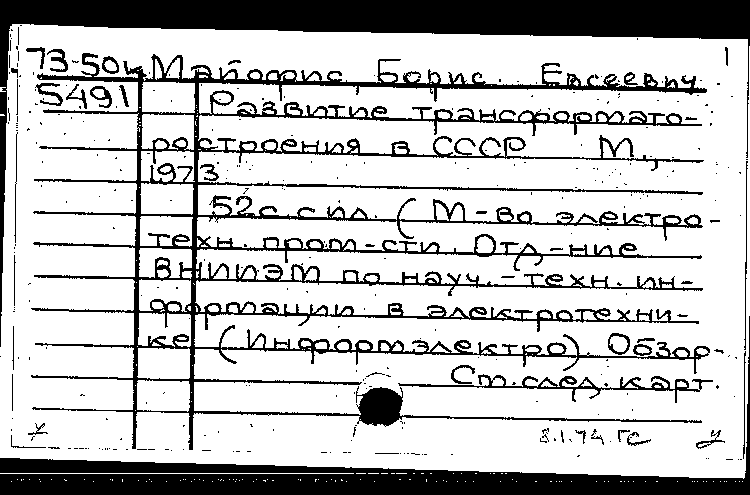 1
73-50к Майофис, Борис Евсеевич.
5491 Развитие трансформато-
ростроения в СССР М.,
1973
52с. с ил. (М-во электро-
техн. пром-сти. Отд-ние
ВНИИЭМ по науч.-техн. ин-
формации в электротехни-
ке (Информэлектро). Обзор-
См. след. карт.
8.1.74. ГС